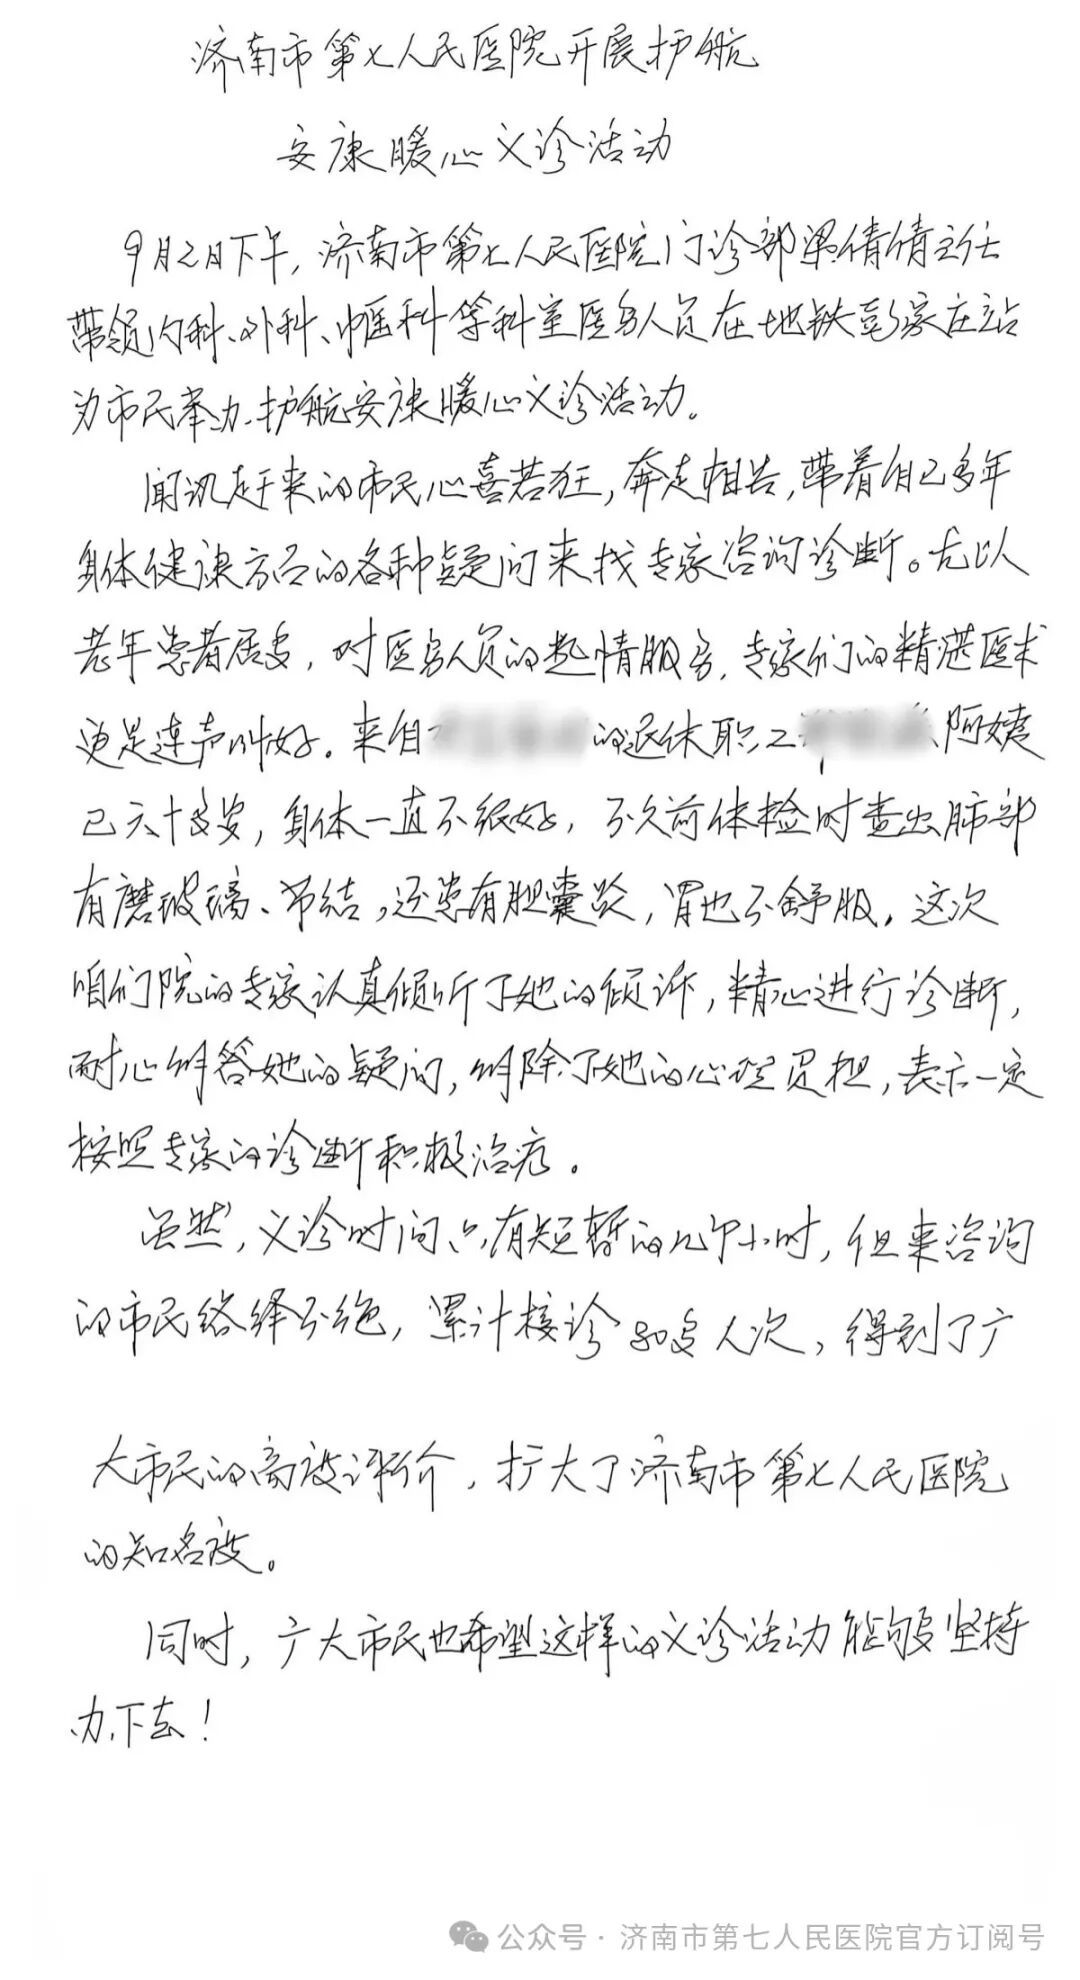 济南市第七人民医院开展护航
安康暖心义诊活动
9月2日下午,济南市第七人民医院门诊部梁倩倩主任
带领内科、外科、中医科等科室医务人员在地铁彭家庄站
为市民举办护航安康暖心义诊活动。
闻讯赶来的市民心喜若狂,奔走相告,带着自己多年
身体健康方面的各种疑问来找专家咨询诊断。尤以
老年患者居多,对医务人员的热情服务,专家们的精湛医术
更是连声叫好。来自 的退休职工 阿姨
已六十多岁,身体一直不很好,不久前体检时查出肺部
有磨玻璃、节结,还患有胆囊炎,胃也不舒服。这次
咱们院的专家认真倾听了她的倾诉,精心进行诊断,
耐心解答她的疑问,解除了她的心理负担,表示一定
按照专家的诊断积极治疗。
虽然,义诊时间只有短暂的几个小时,但来咨询
的市民络绎不绝,累计接诊80多人次,得到了广
大市民的高度评价,扩大了济南市第七人民医院
的知名度。
同时,广大市民也希望这样的义诊活动能够坚持
办下去!
公众号·济南市第七人民医院官方订阅号